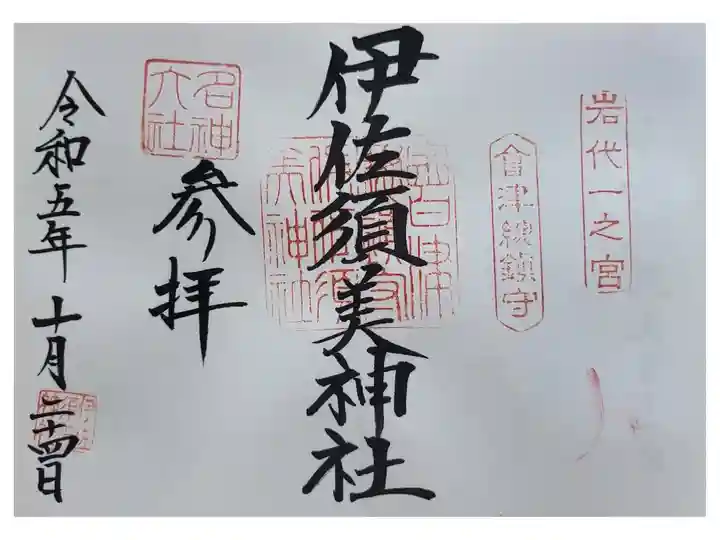 岩代一之宮
會津総鎮守
伊佐須美神社
名神大社
参拝
令和五年十月二十四日